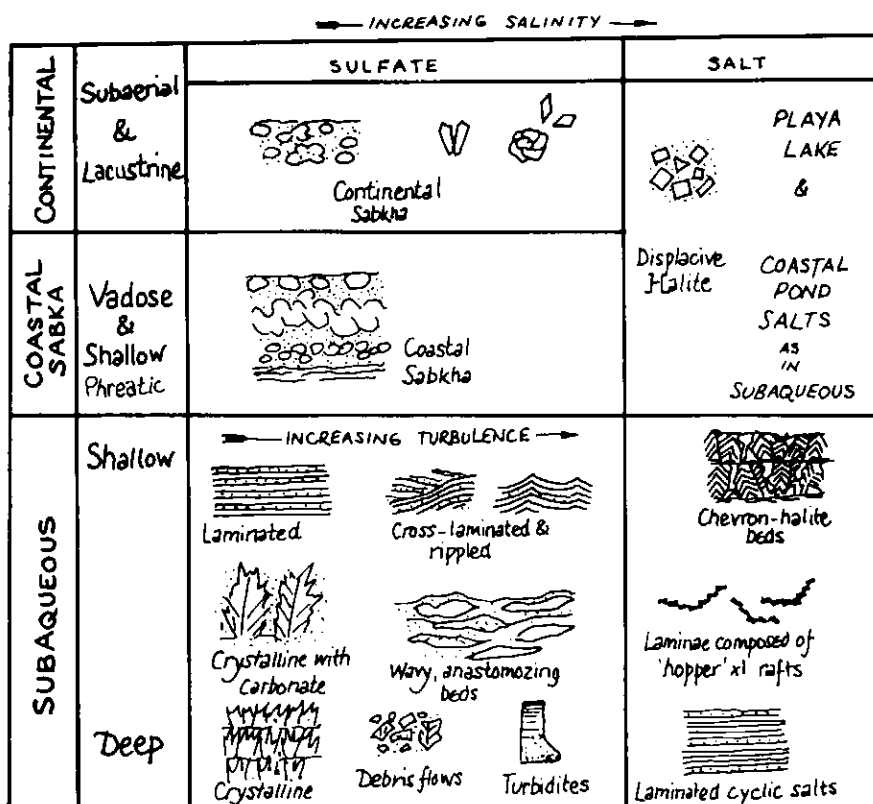 INCREASING SALINITY
SULFATE
SALT
CONTINENTAL
Subaerial
&
Lacustrine
Continental
Sabkha
PLAYA
LAKE
&
Displacive
Halite
COASTAL
POND
SALTS
AS
IN
SUBAQUEOUS
COASTAL
SABKA
Vadose
&
Shallow
Phreatic
Coastal
Sabkha
SUBAQUEOUS
Shallow
INCREASING TURBULENCE
Laminated
Cross-laminated &
rippled
Chevron-halite
beds
Crystalline with
Carbonate
Wavy, anastomozing
beds
Laminae composed of
'hopper' xl rafts
Deep
Crystalline
Debris flows
Turbidites
Laminated cyclic salts